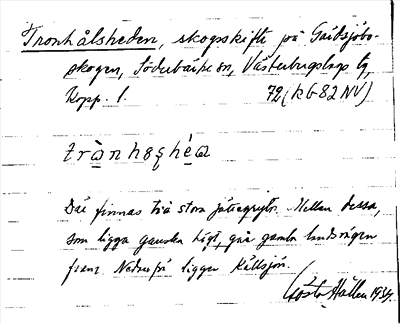 Tronhålsheden, skogsskifte på Gaddsjöbo-
skogen, Söderbärke sn, Västerbergslags tg,
Kopp. l. 72 (kb 82 NV)
trànhǫshéa
Där finnas två stora jättegrytor. Mellan dessa,
som ligga ganska högt, går gamla landsvägen
fram. Nedanför ligger Källsjön.
Gösta Hållen 1934.